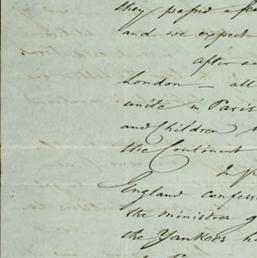 they passed a few
and we expect
after
London — all
unite in Paris
and Children
the Continent
In
England confess
the minister
the Yankees ha